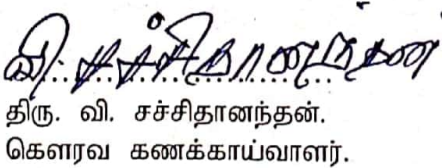 வி. சச்சிதானந்தன்
திரு. வி. சச்சிதானந்தன்.
கௌரவ கணக்காய்வாளர்.